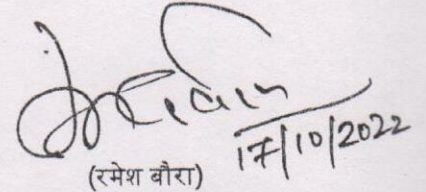 17/10/2022
(रमेश बौरा)